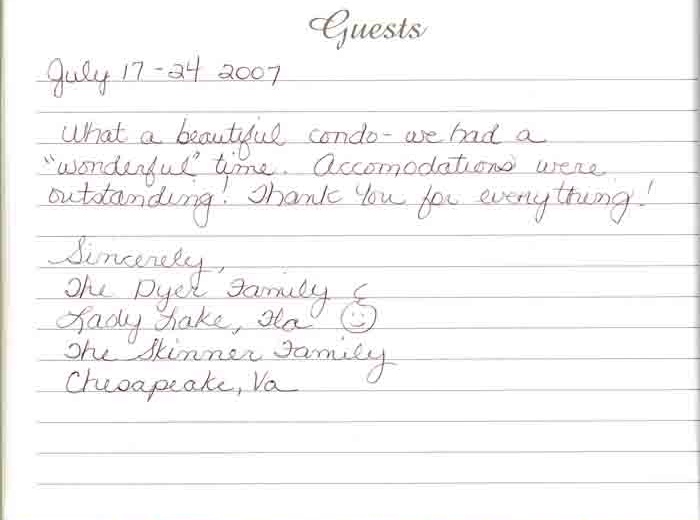 Guests
July 17-24 2007
What a beautiful condo - we had a
"wonderful" time. Accomodations were
outstanding! Thank You for everything!
Sincerely,
The Dyer Family &
Lady Lake, Fla
The Skinner Family
Chesapeake, Va